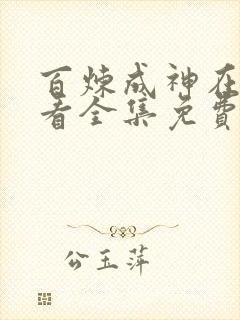 百炼成神在
看全集免費
公玉萍